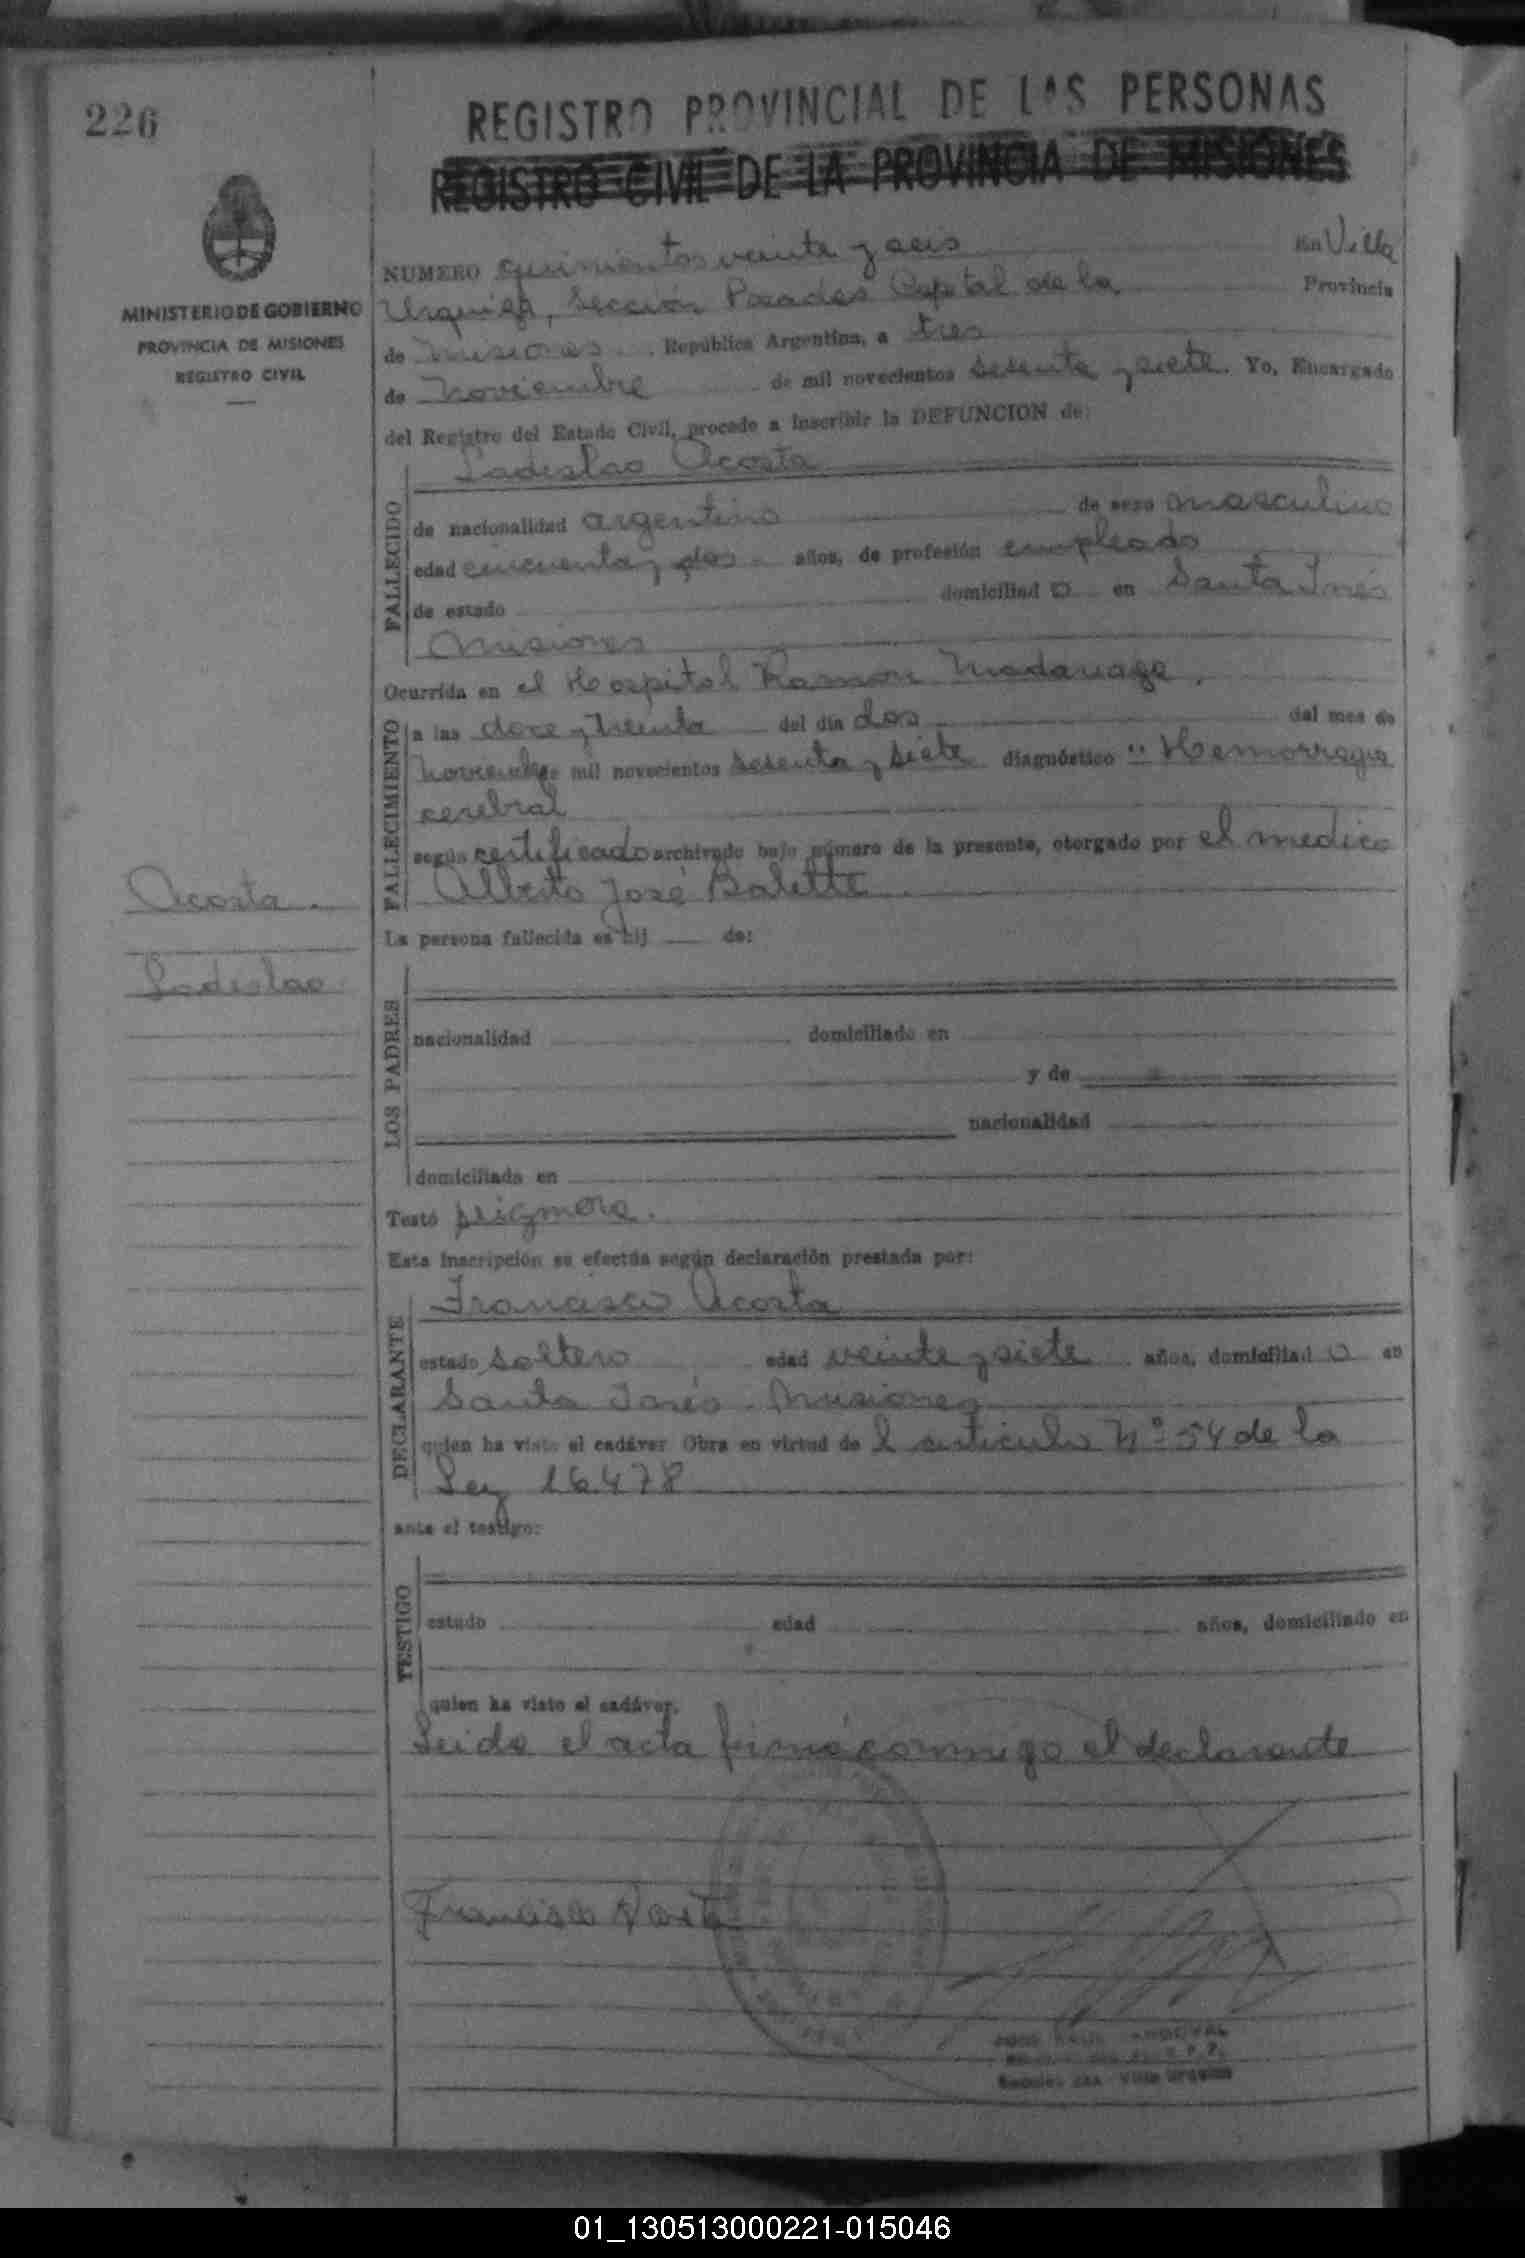 226
REGISTRO PROVINCIAL DE LAS PERSONAS
REGISTRO CIVIL DE LA PROVINCIA DE MISIONES
MINISTERIO DE GOBIERNO
PROVINCIA DE MISIONES
REGISTRO CIVIL
NUMERO quinientos veinte y seis En Villa
Urquiza, Sección Posadas Capital de la Provincia
de Misiones República Argentina, a tres
de Noviembre de mil novecientos sesenta y siete. Yo, Encargado
del Registro del Estado Civil, procedo a inscribir la DEFUNCION de:
Ladislao Acosta
FALLECIDO
de nacionalidad argentino de sexo masculino
edad cincuenta y dos años, de profesión empleado
de estado domiciliad o en Santa Inés
Misiones
Ocurrida en el Hospital Ramon Madariaga.
FALLECIMIENTO
a las doce y treinta del día dos del mes de
Noviembre de mil novecientos sesenta y siete diagnóstico "Hemorragia
cerebral
según certificado archivado bajo número de la presente, otorgado por el medico
Alberto José
La persona fallecida es hij de:
Acosta
Ladislao
LOS PADRES
nacionalidad domiciliado en
y de
nacionalidad
domiciliada en
Testó se ignora.
Esta inscripción se efectúa según declaración prestada por:
Francisco Acosta
DECLARANTE
estado soltero edad veinte y siete años, domiciliad o en
Santa Inés - Misiones
quien ha visto el cadáver Obra en virtud de l articulo Nº 54 de la
Ley 16.478
ante el testigo:
TESTIGO
estado edad años, domiciliado en
quien ha visto el cadáver.
Leido el acta firmó conmigo el declarante
Francisco Acosta
Villa Urquiza
01_130513000221-015046